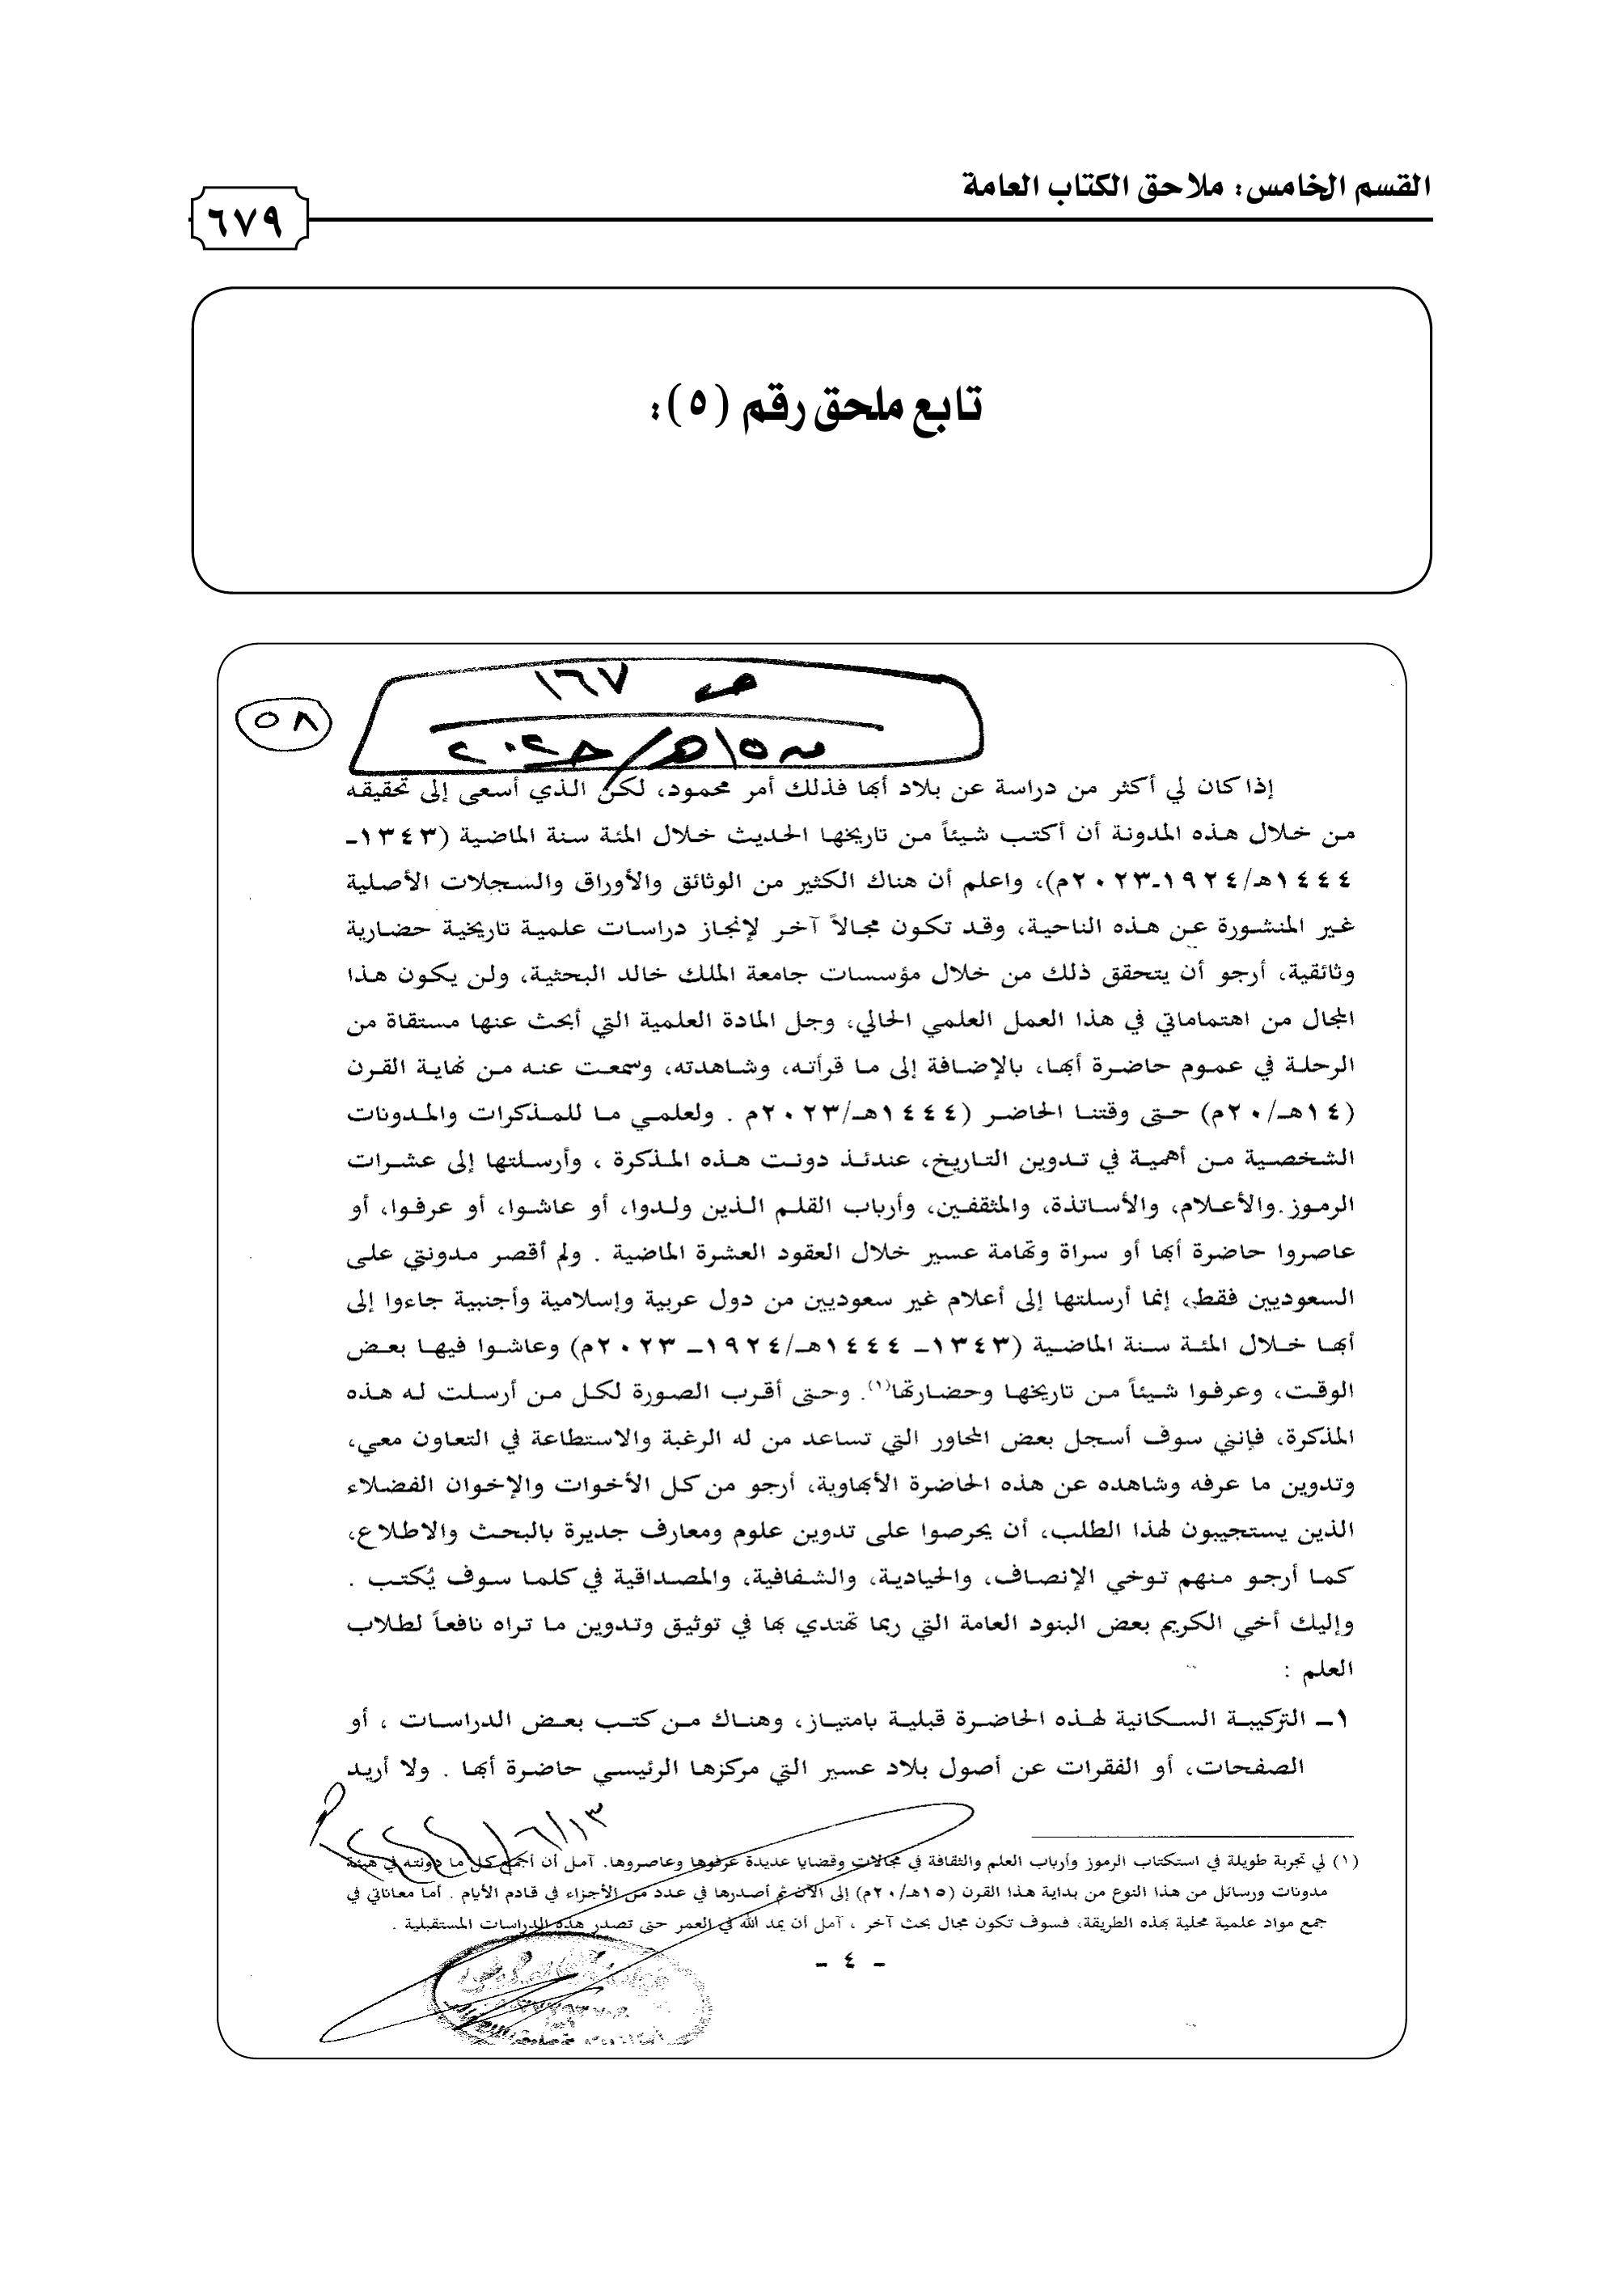 القسم الخامس: ملاحق الكتاب العامة
٦٧٩
تابع ملحق رقم (٥):
ص ١٦٧
٥٨
إذا كان لي أكثر من دراسة عن بلاد أبها فذلك أمر محمود، لكن الذي أسعى إلى تحقيقه
من خلال هذه المدونة أن أكتب شيئاً من تاريخها الحديث خلال المئة سنة الماضية (١٣٤٣ـ
١٤٤٤هـ/١٩٢٤ـ٢٠٢٣م)، واعلم أن هناك الكثير من الوثائق والأوراق والسجلات الأصلية
غير المنشورة عن هذه الناحية، وقد تكون مجالاً آخر لإنجاز دراسات علمية تاريخية حضارية
وثائقية، أرجو أن يتحقق ذلك من خلال مؤسسات جامعة الملك خالد البحثية، ولن يكون هذا
المجال من اهتماماتي في هذا العمل العلمي الحالي، وجل المادة العلمية التي أبحث عنها مستقاة من
الرحلة في عموم حاضرة أبها، بالإضافة إلى ما قرأته، وشاهدته، وسمعت عنه من نهاية القرن
(١٤هـ/٢٠م) حتى وقتنا الحاضر (١٤٤٤هـ/٢٠٢٣م . ولعلمي ما للمذكرات والمدونات
الشخصية من أهمية في تدوين التاريخ، عندئذ دونت هذه المذكرة ، وأرسلتها إلى عشرات
الرموز.والأعلام، والأساتذة، والمثقفين، وأرباب القلم الذين ولدوا، أو عاشوا، أو عرفوا، أو
عاصروا حاضرة أبها أو سراة وتهامة عسير خلال العقود العشرة الماضية . ولم أقصر مدونتي على
السعوديين فقط، إنما أرسلتها إلى أعلام غير سعوديين من دول عربية وإسلامية وأجنبية جاءوا إلى
أبها خلال المئة سنة الماضية (١٣٤٣ـ ١٤٤٤هـ/١٩٢٤ـ ٢٠٢٣م) وعاشوا فيها بعض
الوقت، وعرفوا شيئاً من تاريخها وحضارتها(١). وحتى أقرب الصورة لكل من أرسلت له هذه
المذكرة، فإنني سوف أسجل بعض المحاور التي تساعد من له الرغبة والاستطاعة في التعاون معي،
وتدوين ما عرفه وشاهده عن هذه الحاضرة الأبهاوية، أرجو من كل الأخوات والإخوان الفضلاء
الذين يستجيبون لهذا الطلب، أن يحرصوا على تدوين علوم ومعارف جديرة بالبحث والاطلاع،
كما أرجو منهم توخي الإنصاف، والحيادية، والشفافية، والمصداقية في كلما سوف يُكتب .
وإليك أخي الكريم بعض البنود العامة التي ربما تهتدي بها في توثيق وتدوين ما تراه نافعاً لطلاب
العلم :
١ـ التركيبة السكانية لهذه الحاضرة قبلية بامتياز، وهناك من كتب بعض الدراسات ، أو
الصفحات، أو الفقرات عن أصول بلاد عسير التي مركزها الرئيسي حاضرة أبها . ولا أريد
(١) لي تجربة طويلة في استكتاب الرموز وأرباب العلم والثقافة في مجالات وقضايا عديدة عرفوها وعاصروها. آمل أن أجمع كل ما دونته في هيئة
مدونات ورسائل من هذا النوع من بداية هذا القرن (١٥هـ/٢٠م) إلى الآن ثم أصدرها في عدد من الأجزاء في قادم الأيام . أما معاناتي في
جمع مواد علمية محلية بهذه الطريقة، فسوف تكون مجال بحث آخر ، آمل أن يمد الله في العمر حتى تصدر هذه الدراسات المستقبلية .
- ٤ -